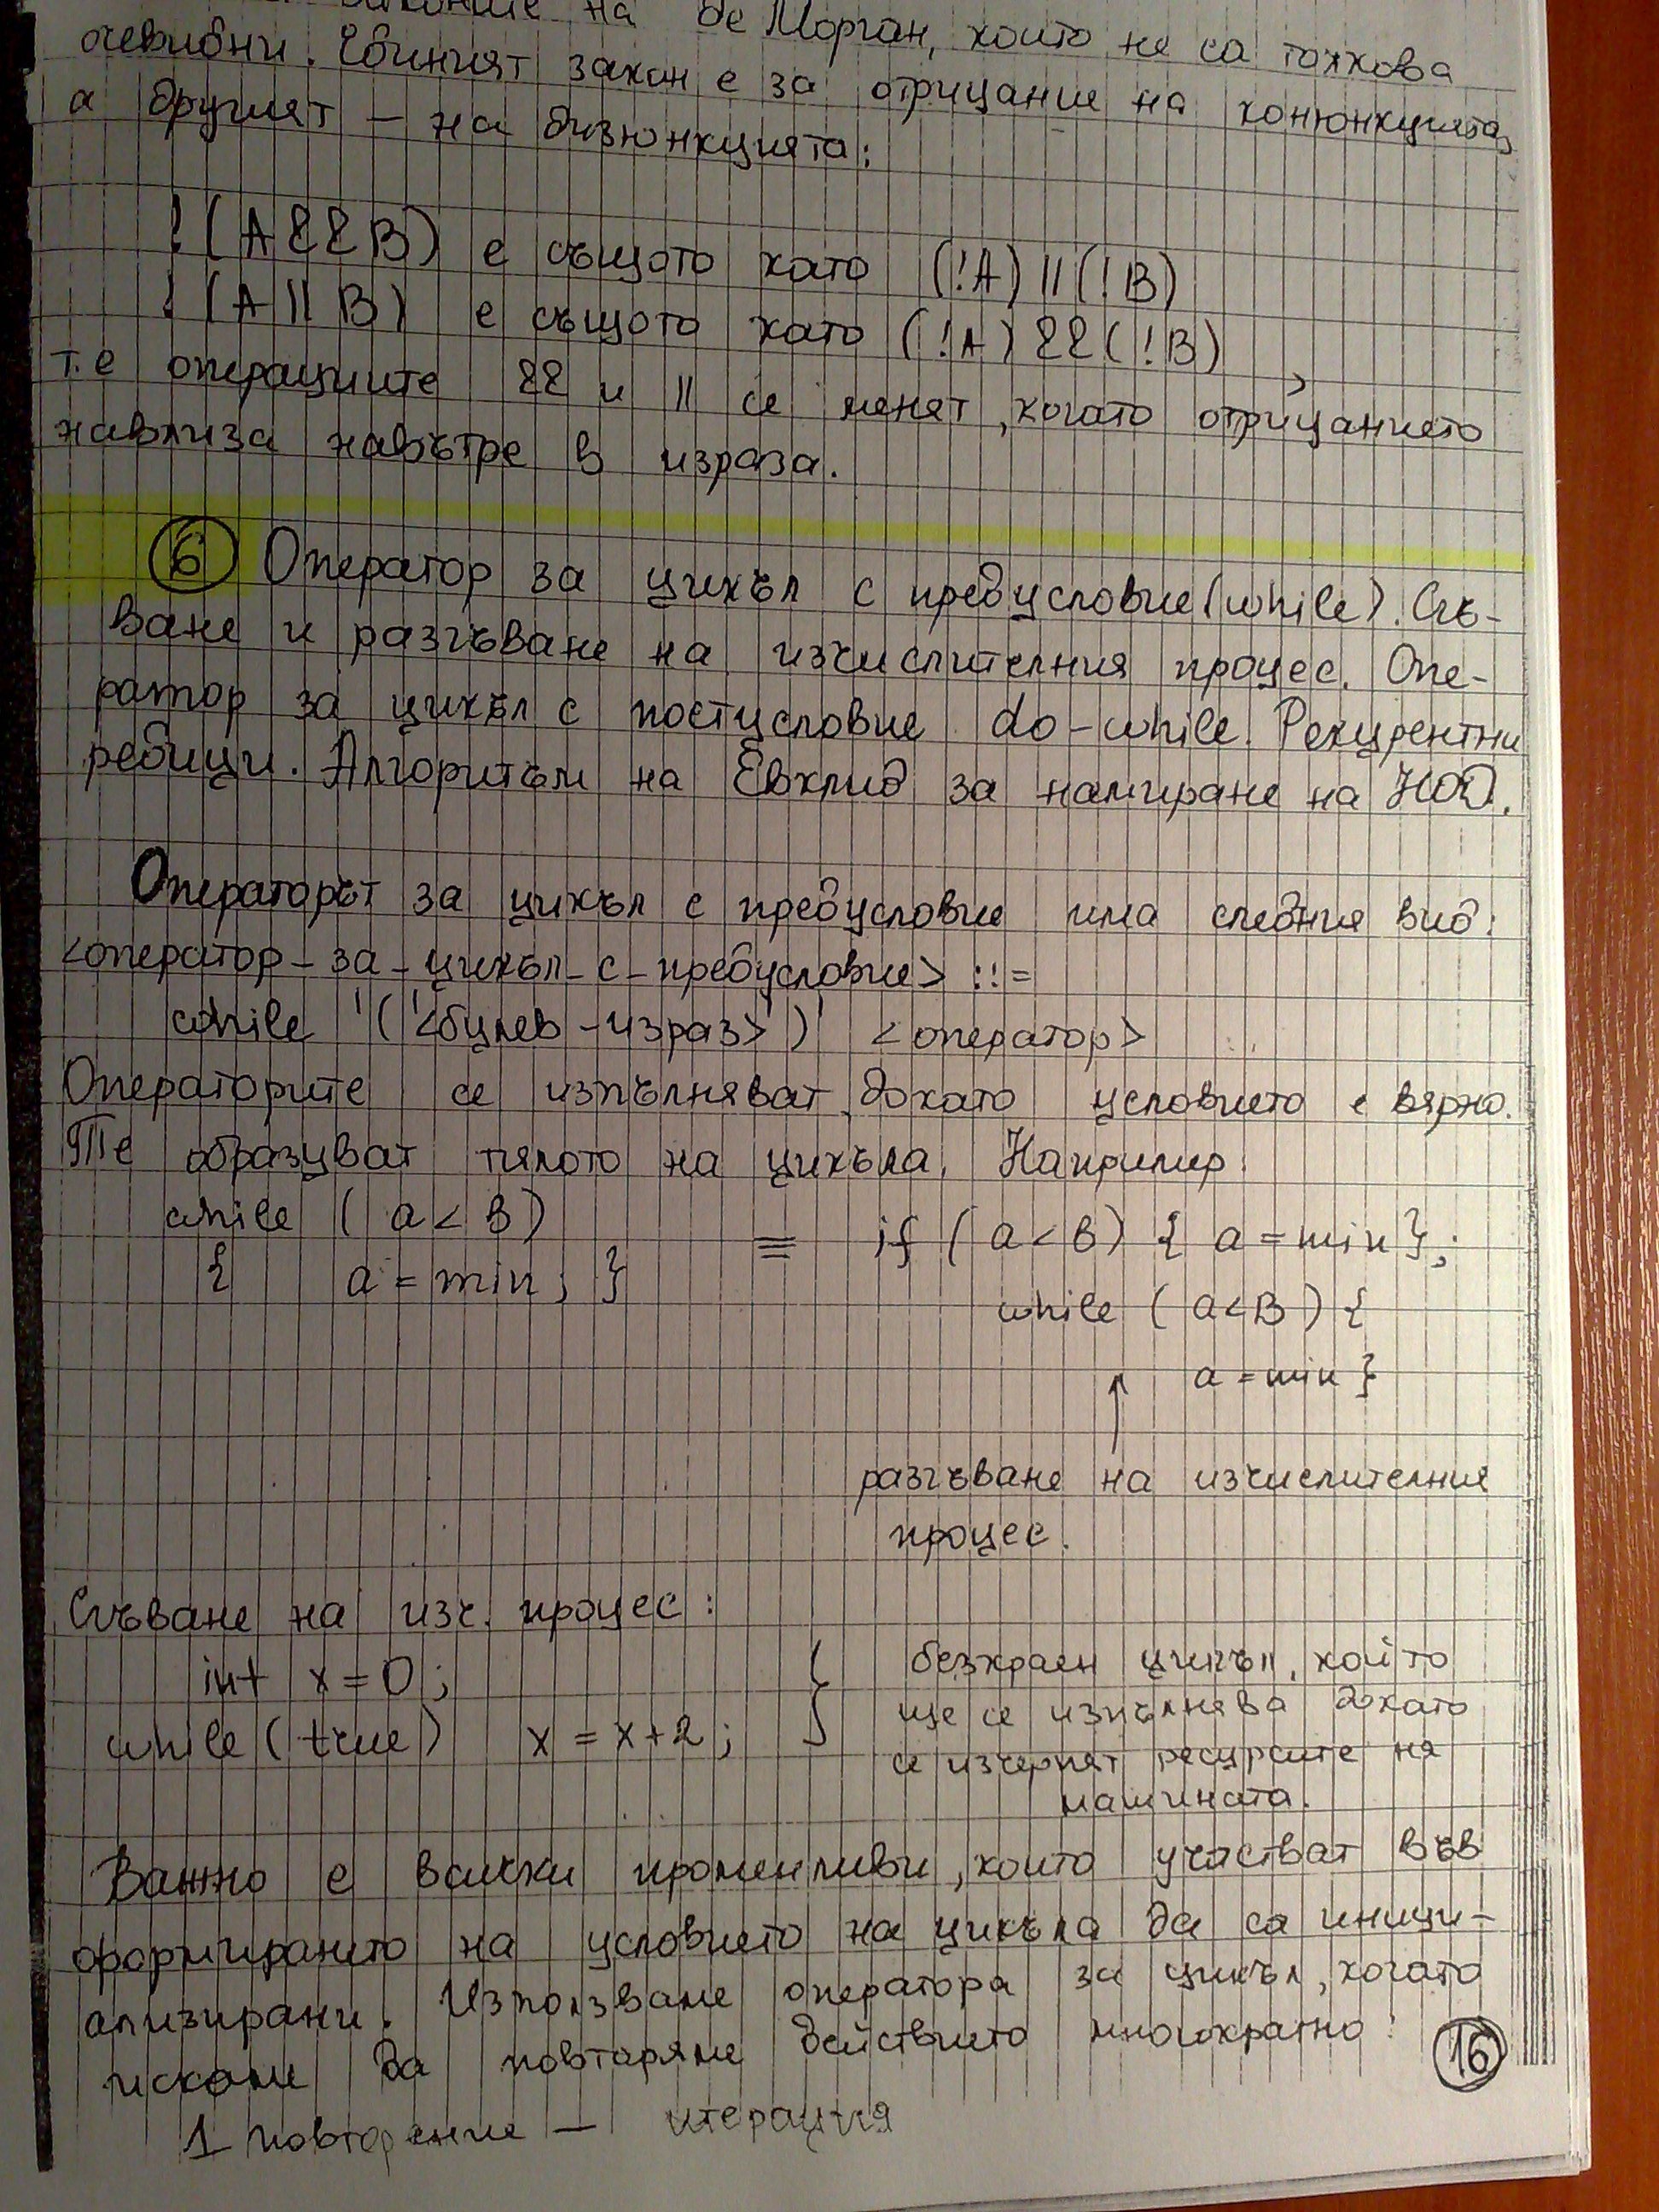 на де Морган, които не са толкова
очевидни. Единият закон е за отрицание на конюнкцията,
а другият – на дизюнкцията:
!(A&&B) е същото като (!A)||(!B)
!(A||B) е същото като (!A)&&(!B)
т.е операциите && и || се менят, когато отрицанието
навлиза навътре в израза.
6 Оператор за цикъл с предусловие (while). Сгъ-
ване и разгъване на изчислителния процес. Опе-
ратор за цикъл с постусловие do-while. Рекурентни
редици. Алгоритъм на Евклид за намиране на НОД.
Операторът за цикъл с предусловие има следния вид:
<оператор-за-цикъл-с-предусловие> ::=
while '('<булев-израз>')' <оператор>
Операторите се изпълняват докато условието е вярно.
Те образуват тялото на цикъла. Например:
while (a<B) ≡ if (a<B) { a=min};
{ a=min; } while (a<B) {
a=min }
↑
разгъване на изчислителния
процес.
Сгъване на изч. процес:
int x=0; } безкраен цикъл, който
while(true) x=x+2; ще се изпълнява докато
се изчерпят ресурсите на
машината.
Важно е всички променливи, които участват във
формирането на условието на цикъла да са иници-
ализирани. Използваме оператора за цикъл, когато
искаме да повтаряме действието многократно:
16
1 повторение – итерация